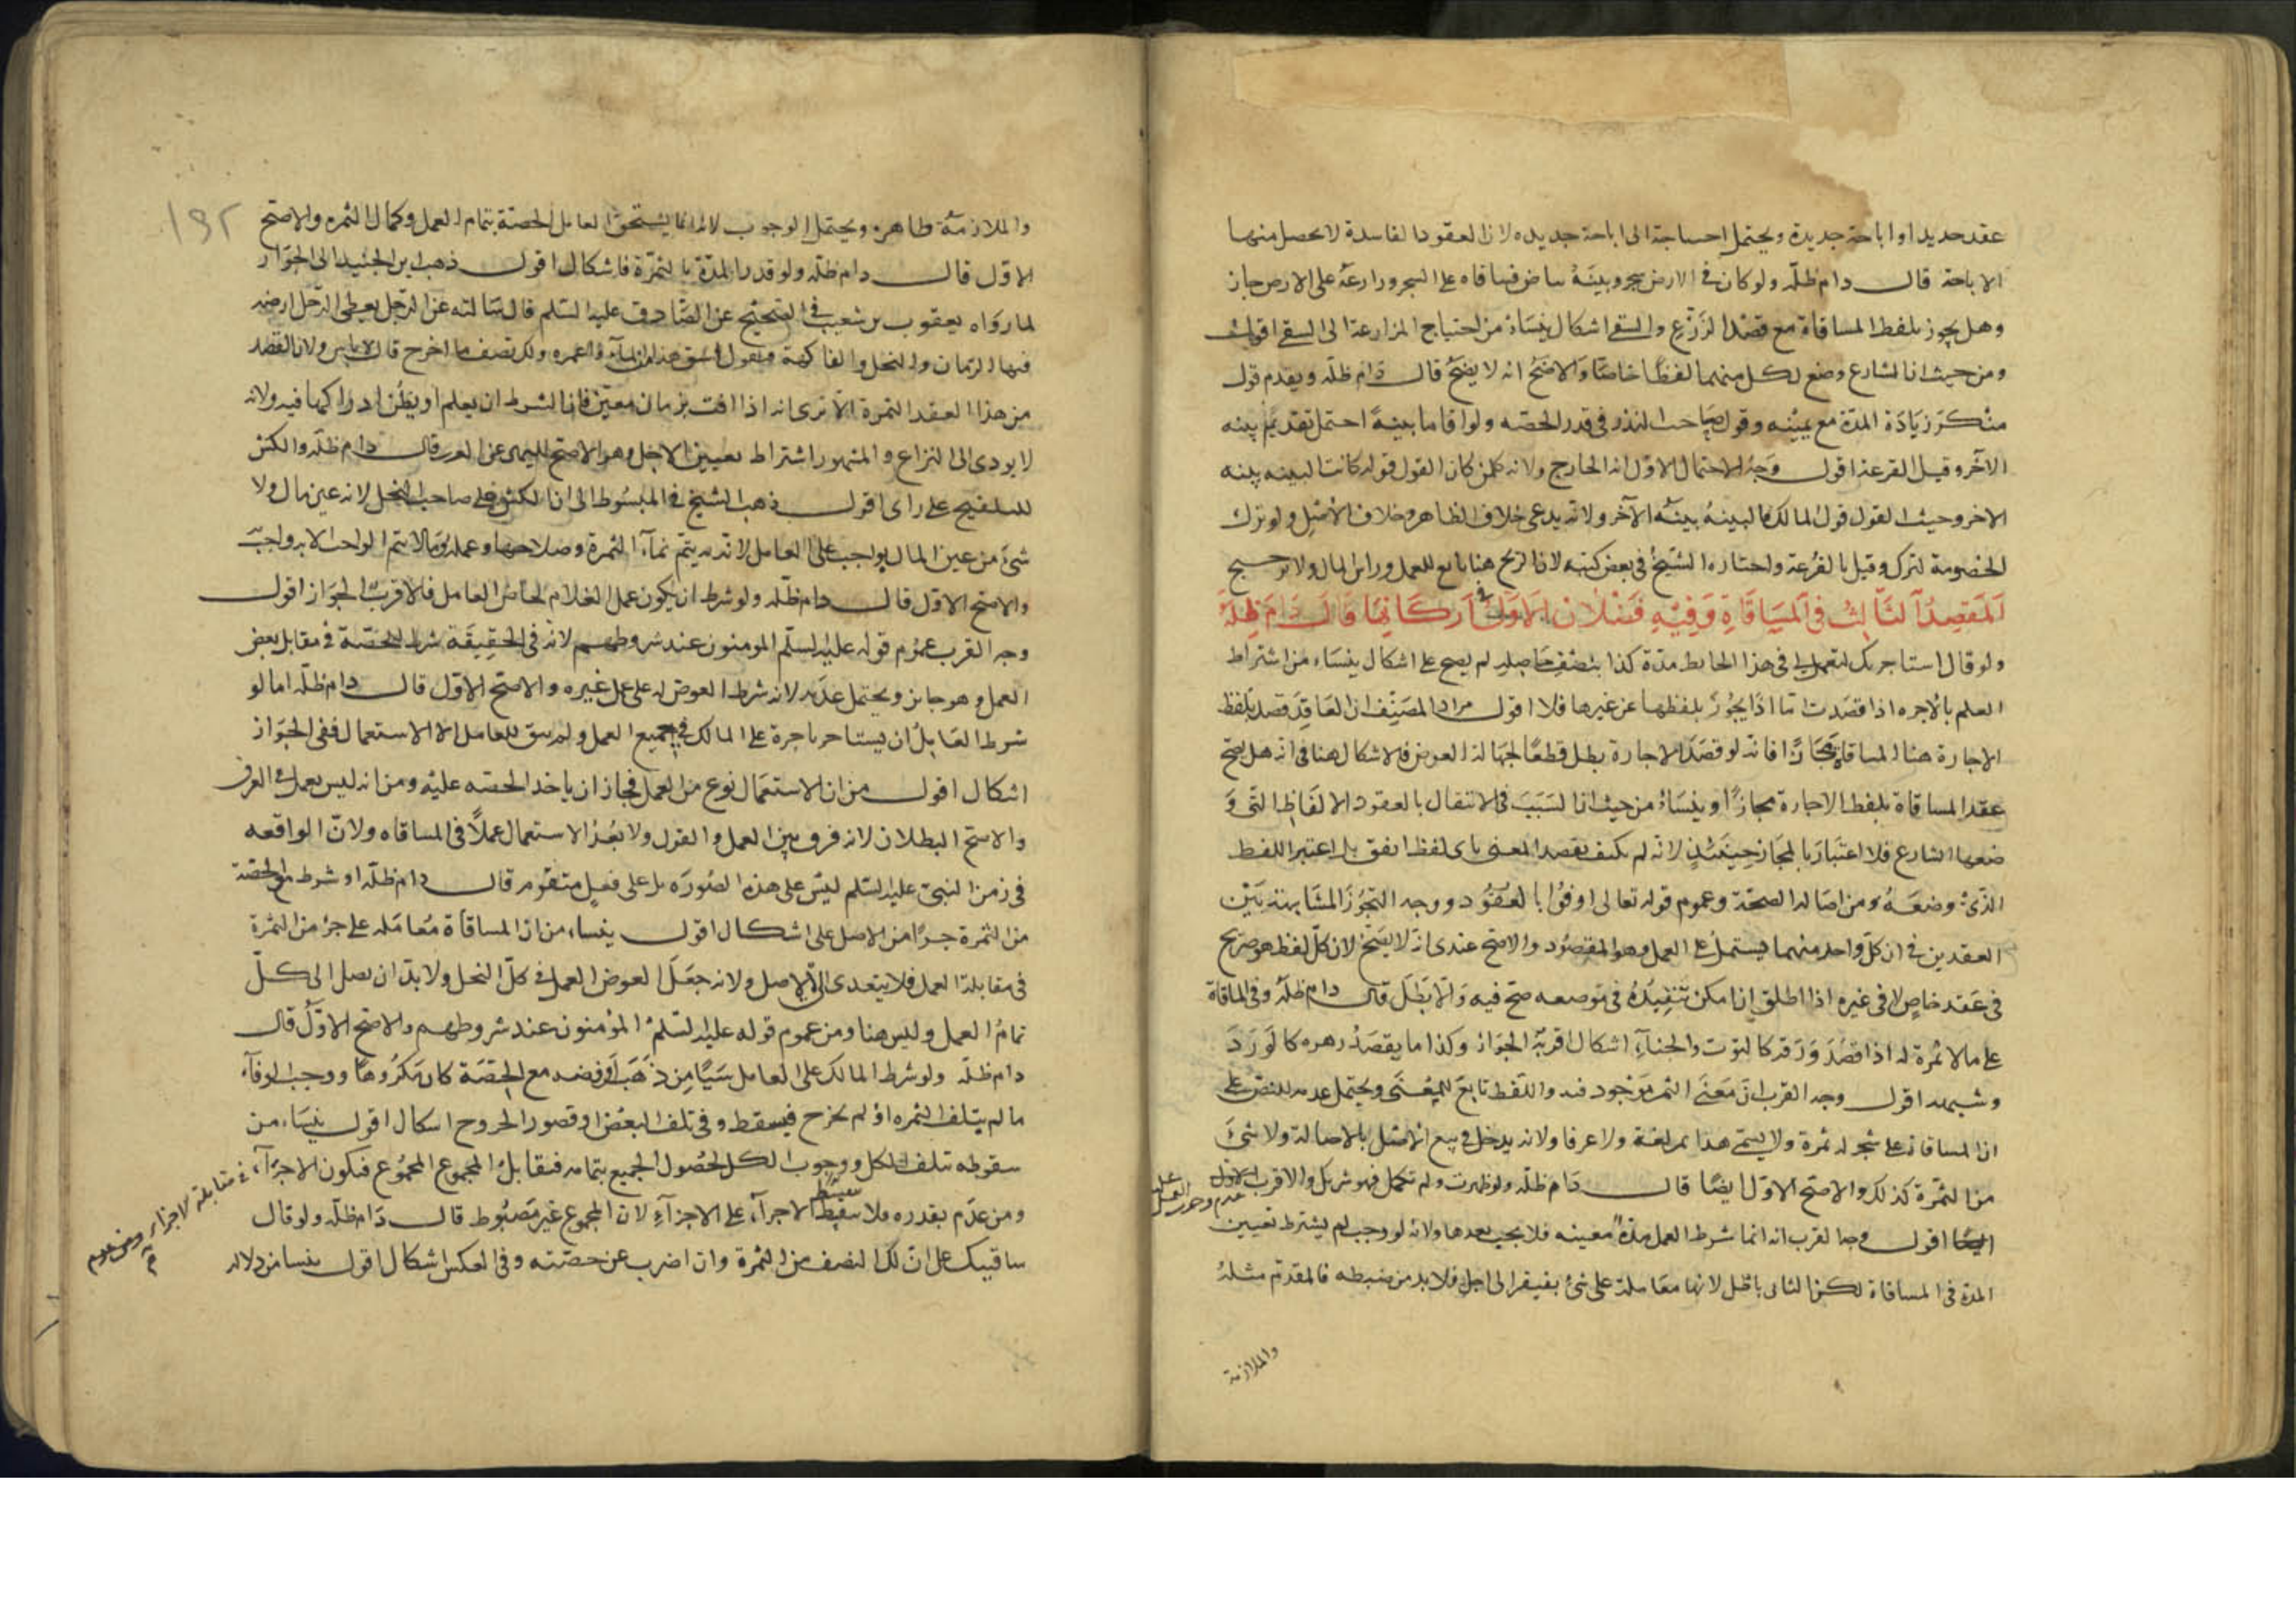 عقد جديد او اباحة جديدة ويحتمل احتياجه الى اباحة جديده لان العقود الفاسدة لا يحصل منها
الاباحة قال دام ظله ولو كان في الارض شجر وبينه بياض فساقاه على الشجر وزارعه على الارض جاز
وهل يجوز بلفظ المساقاة مع قصد الزرع والسقي اشكال ينشاء من احتياج المزارعة الى السقي اقول
ومن حيث ان الشارع وضع لكل منهما لفظا خاصا والاصح انه لا يصح قال دام ظله ويقدم قول
منكر زيادة المدة مع يمينه وقول صاحب البذر في قدر الحصه ولو اقاما بينة احتمل تقديم بينه
الآخر وقيل القرعة اقول وجه الاحتمال الاول انه الخارج ولانه كلمن كان القول قوله كانت البينه بينه
الاخر وحيث القول قول المالك فالبينة بينة الآخر ولانه يدعى خلاف الظاهر وخلاف الاصل ولو ترك
الخصومة لترك وقيل بالقرعة واختاره الشيخ في بعض كتبه لان الربح هنا تابع للعمل وراس المال ولا ترجيح
المقصد الثالث في المساقاة وفيه فصلان الاول في اركانها قال دام ظله
ولو قال استاجرتك لتعمل لي في هذا الحايط مدة كذا بنصف حاصله لم يصح على اشكال ينشاء من اشتراط
العلم بالاجره اذا قصدت اما اذا يجوز بلفظها عن غيرها فلا اقول مراد المصنف ان العاقد قصد بلفظ
الاجارة هنا المساقاة مجازا فانه لو قصد الاجارة بطل قطعا لجهالة العوض فالاشكال هنا في انه هل يصح
عقد المساقاة بلفظ الاجارة مجازا او ينشاء من حيث ان السبب في الانتقال بالعقود الالفاظ التي و
ضعها الشارع فلا اعتبار بالمجاز حينئذ لانه لم يكتف بقصد المعنى باى لفظ اتفق بل اعتبر اللفظ
الذى وضعه ومن اصالة الصحة وعموم قوله تعالى اوفوا بالعقود ووجه التجوز المشابهة بين
العقدين في ان كل واحد منهما يشتمل على العمل وهو المقصود والاصح عندى انه لا يصح لان كل لفظ هو صريح
في عقد خاص لا في غيره اذا اطلق ان امكن تنفيذه في موضعه صح فيه والا بطل قال دام ظله وفي المساقاة
على ما لا ثمرة له اذا قصد ورقه كالتوت والحناء اشكال اقربه الجواز وكذا ما يقصد زهره كالورد
وشبهه اقول وجه القرب ان معنى الثمر موجود فيه واللفظ تابع للمعنى ويحتمل عدمه للنص على
ان المساقاة على شجر له ثمرة ولا يسمى هذا ثمر لغة ولا عرفا ولانه يدخل في بيع الاصل بالاصالة ولا شئ
من الثمرة كذلك والاصح الاول ايضا قال دام ظله ولو ظهرت ولم تكمل فهو شريك والاقرب عدم وجوب العمل عليه
اقول وجه القرب انه انما شرط العمل مدة معينه فلا يجب بعدها ولانه لو وجب لم يشترط تعيين
المدة في المساقاة لكن التالى باطل لانها معاملة على شئ يفتقر الى اجل فلا بد من ضبطه فالمقدم مثله
والملازمة
١٩٢
والملازمة ظاهره ويحتمل الوجوب لانه انما يستحق العامل الحصة بتمام العمل وكمال الثمره والاصح
الاول قال دام ظله ولو قدر المدة بالثمرة فاشكال اقول ذهب ابن الجنيد الى الجواز
لما رواه يعقوب بن شعيب في الصحيح عن الصادق عليه السلم قال سالته عن الرجل يعطى الرجل ارضه
فيها الرمان والنخل والفاكهة فيقول اسق هذا من الماء واعمره ولك نصف ما اخرج قال لا باس ولان القصد
من هذا العقد الثمرة الا ترى انه اذا اقت بزمان معين فان الشرط ان يعلم او يظن ادراكها فيه ولانه
لا يودى الى النزاع والمشهور اشتراط تعيين الاجل وهو الاصح للنهى عن الغرر قال دام ظله والكش
للتلقيح على راى اقول ذهب الشيخ في المبسوط الى ان الكش على صاحب النخل لانه عين مال ولا
شئ من عين المال بواجب على العامل لانه به يتم نماء الثمرة وصلاحها وعمله وما لا يتم الواجب الا به واجب
والاصح الاول قال دام ظله ولو شرط ان يكون عمل الغلام لخاص العامل فالاقرب الجواز اقول
وجه القرب عموم قوله عليه السلم المومنون عند شروطهم لانه في الحقيقة شرط الحصة في مقابل بعض
العمل وهو جائز ويحتمل عدمه لانه شرط العوض له على عمل غيره والاصح الاول قال دام ظله اما لو
شرط العامل ان يستاجر باجرة على المالك في جميع العمل ولم يبق للعامل الا الاستعمال ففي الجواز
اشكال اقول من ان الاستعمال نوع من العمل فجاز ان ياخذ الحصه عليه ومن انه ليس بعمل في العرف
والاصح البطلان لانه فرق بين العمل والقول ولا يعد الاستعمال عملا في المساقاه ولان الواقعه
في زمن النبي عليه السلم ليس على هذه الصوره بل على فعل متقوم قال دام ظله او شرط مع الحصة
من الثمرة جزءا من الاصل على اشكال اقول ينشاء من ان المساقاة معاملة على جزء من الثمرة
في مقابلة العمل فلا يتعدى الى الاصل ولانه جعل العوض العمل في كل النخل ولا بد ان يصل الى كل
تمام العمل وليس هنا ومن عموم قوله عليه السلم المؤمنون عند شروطهم والاصح الاول قال
دام ظله ولو شرط المالك على العامل شيئا من ذهب او فضه مع الحصة كان مكروها ووجب الوفاء
ما لم يتلف الثمره او لم يخرج فيسقط وفي تلف البعض او قصور الخروج اشكال اقول ينشاء من
سقوطه بتلف الكل ووجوب الكل لحصول الجميع بتمامه فيقابل المجموع المجموع فتكون الاجزاء في مقابلة الاجزاء ومن عدم
ومن عدم بقدره فلا يقسط الاجزاء على الاجزاء لان المجموع غير مضبوط قال دام ظله ولو قال
ساقيتك على ان لك النصف من الثمرة وان اضرب عن حصته وفي العكس اشكال اقول ينشا من دلاله